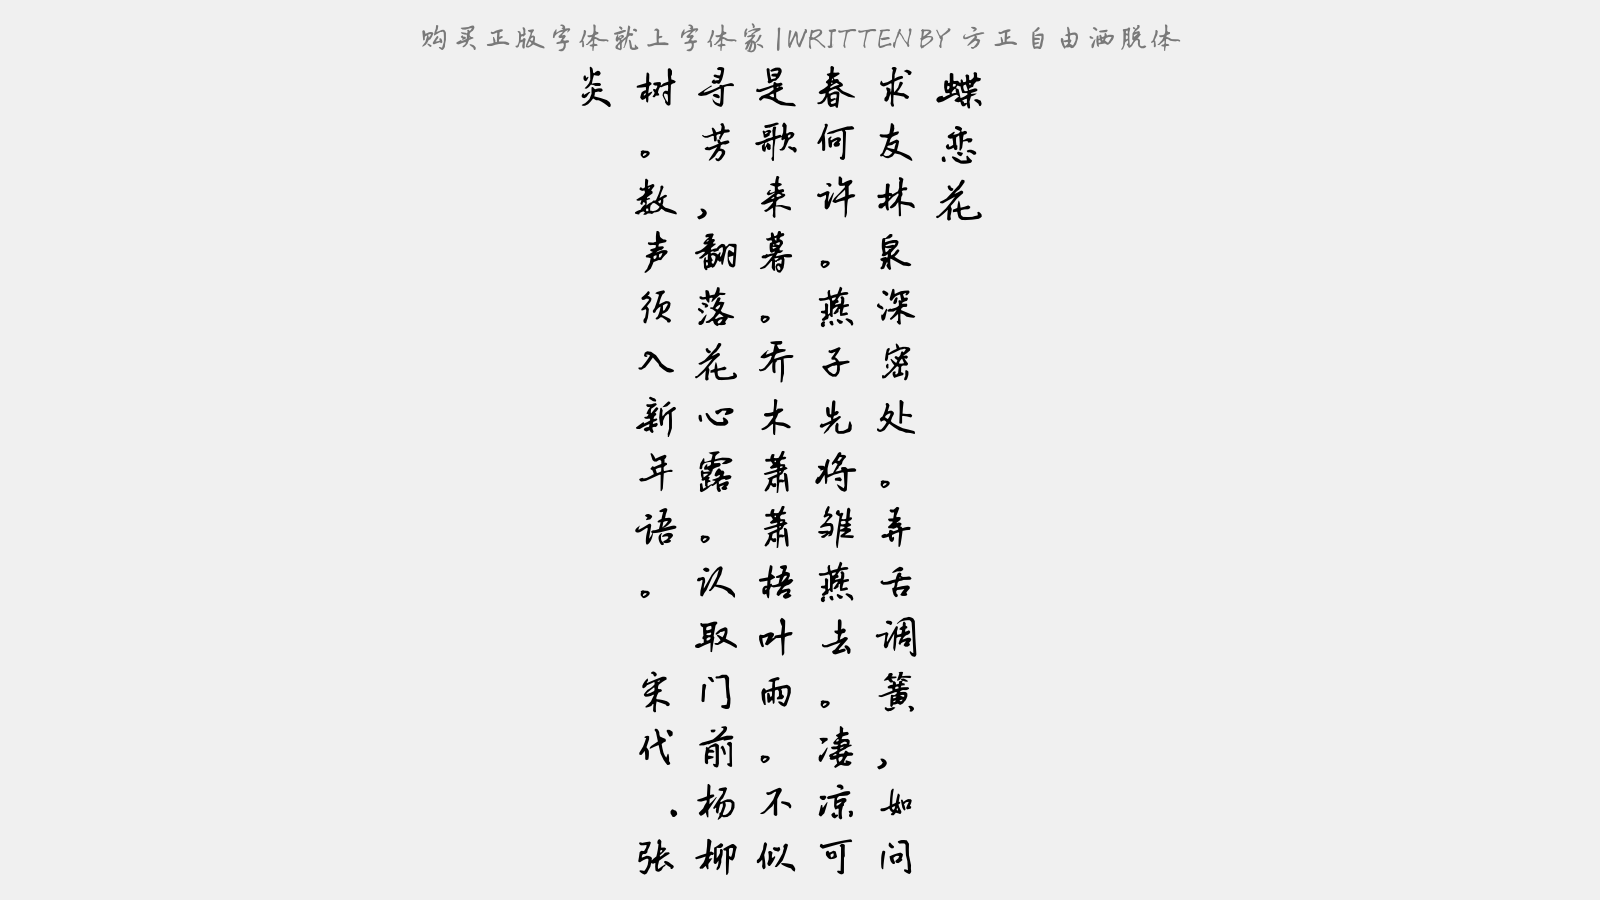 购买正版字体就上字体家|WRITTEN BY 方正自由洒脱体
蝶恋花
求友林泉深密处。弄舌调簧,如问
春何许。燕子先将雏燕去。凄凉可
是歌来暮。乔木萧萧梧叶雨。不似
寻芳,翻落花心露。认取门前杨柳
树。数声须入新年语。 宋代·张
炎